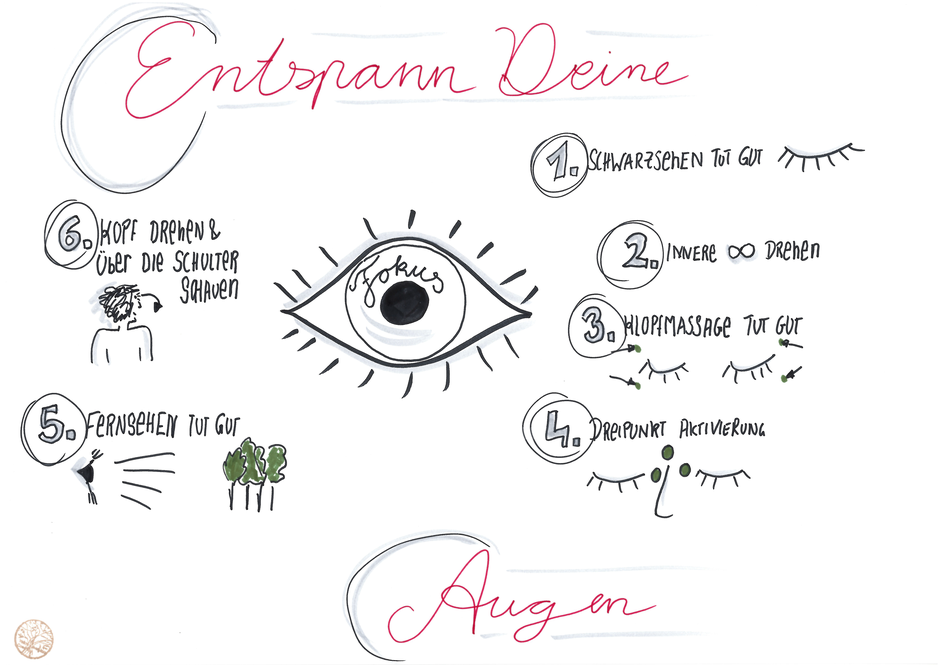 Entspann Deine
1. SCHWARZSEHEN TUT GUT
2. INNERE ∞ DREHEN
3. KLOPFMASSAGE TUT GUT
4. DREIPUNKT AKTIVIERUNG
5. FERNSEHEN TUT GUT
6. KOPF DREHEN &
ÜBER DIE SCHULTER
SCHAUEN
Fokus
Augen